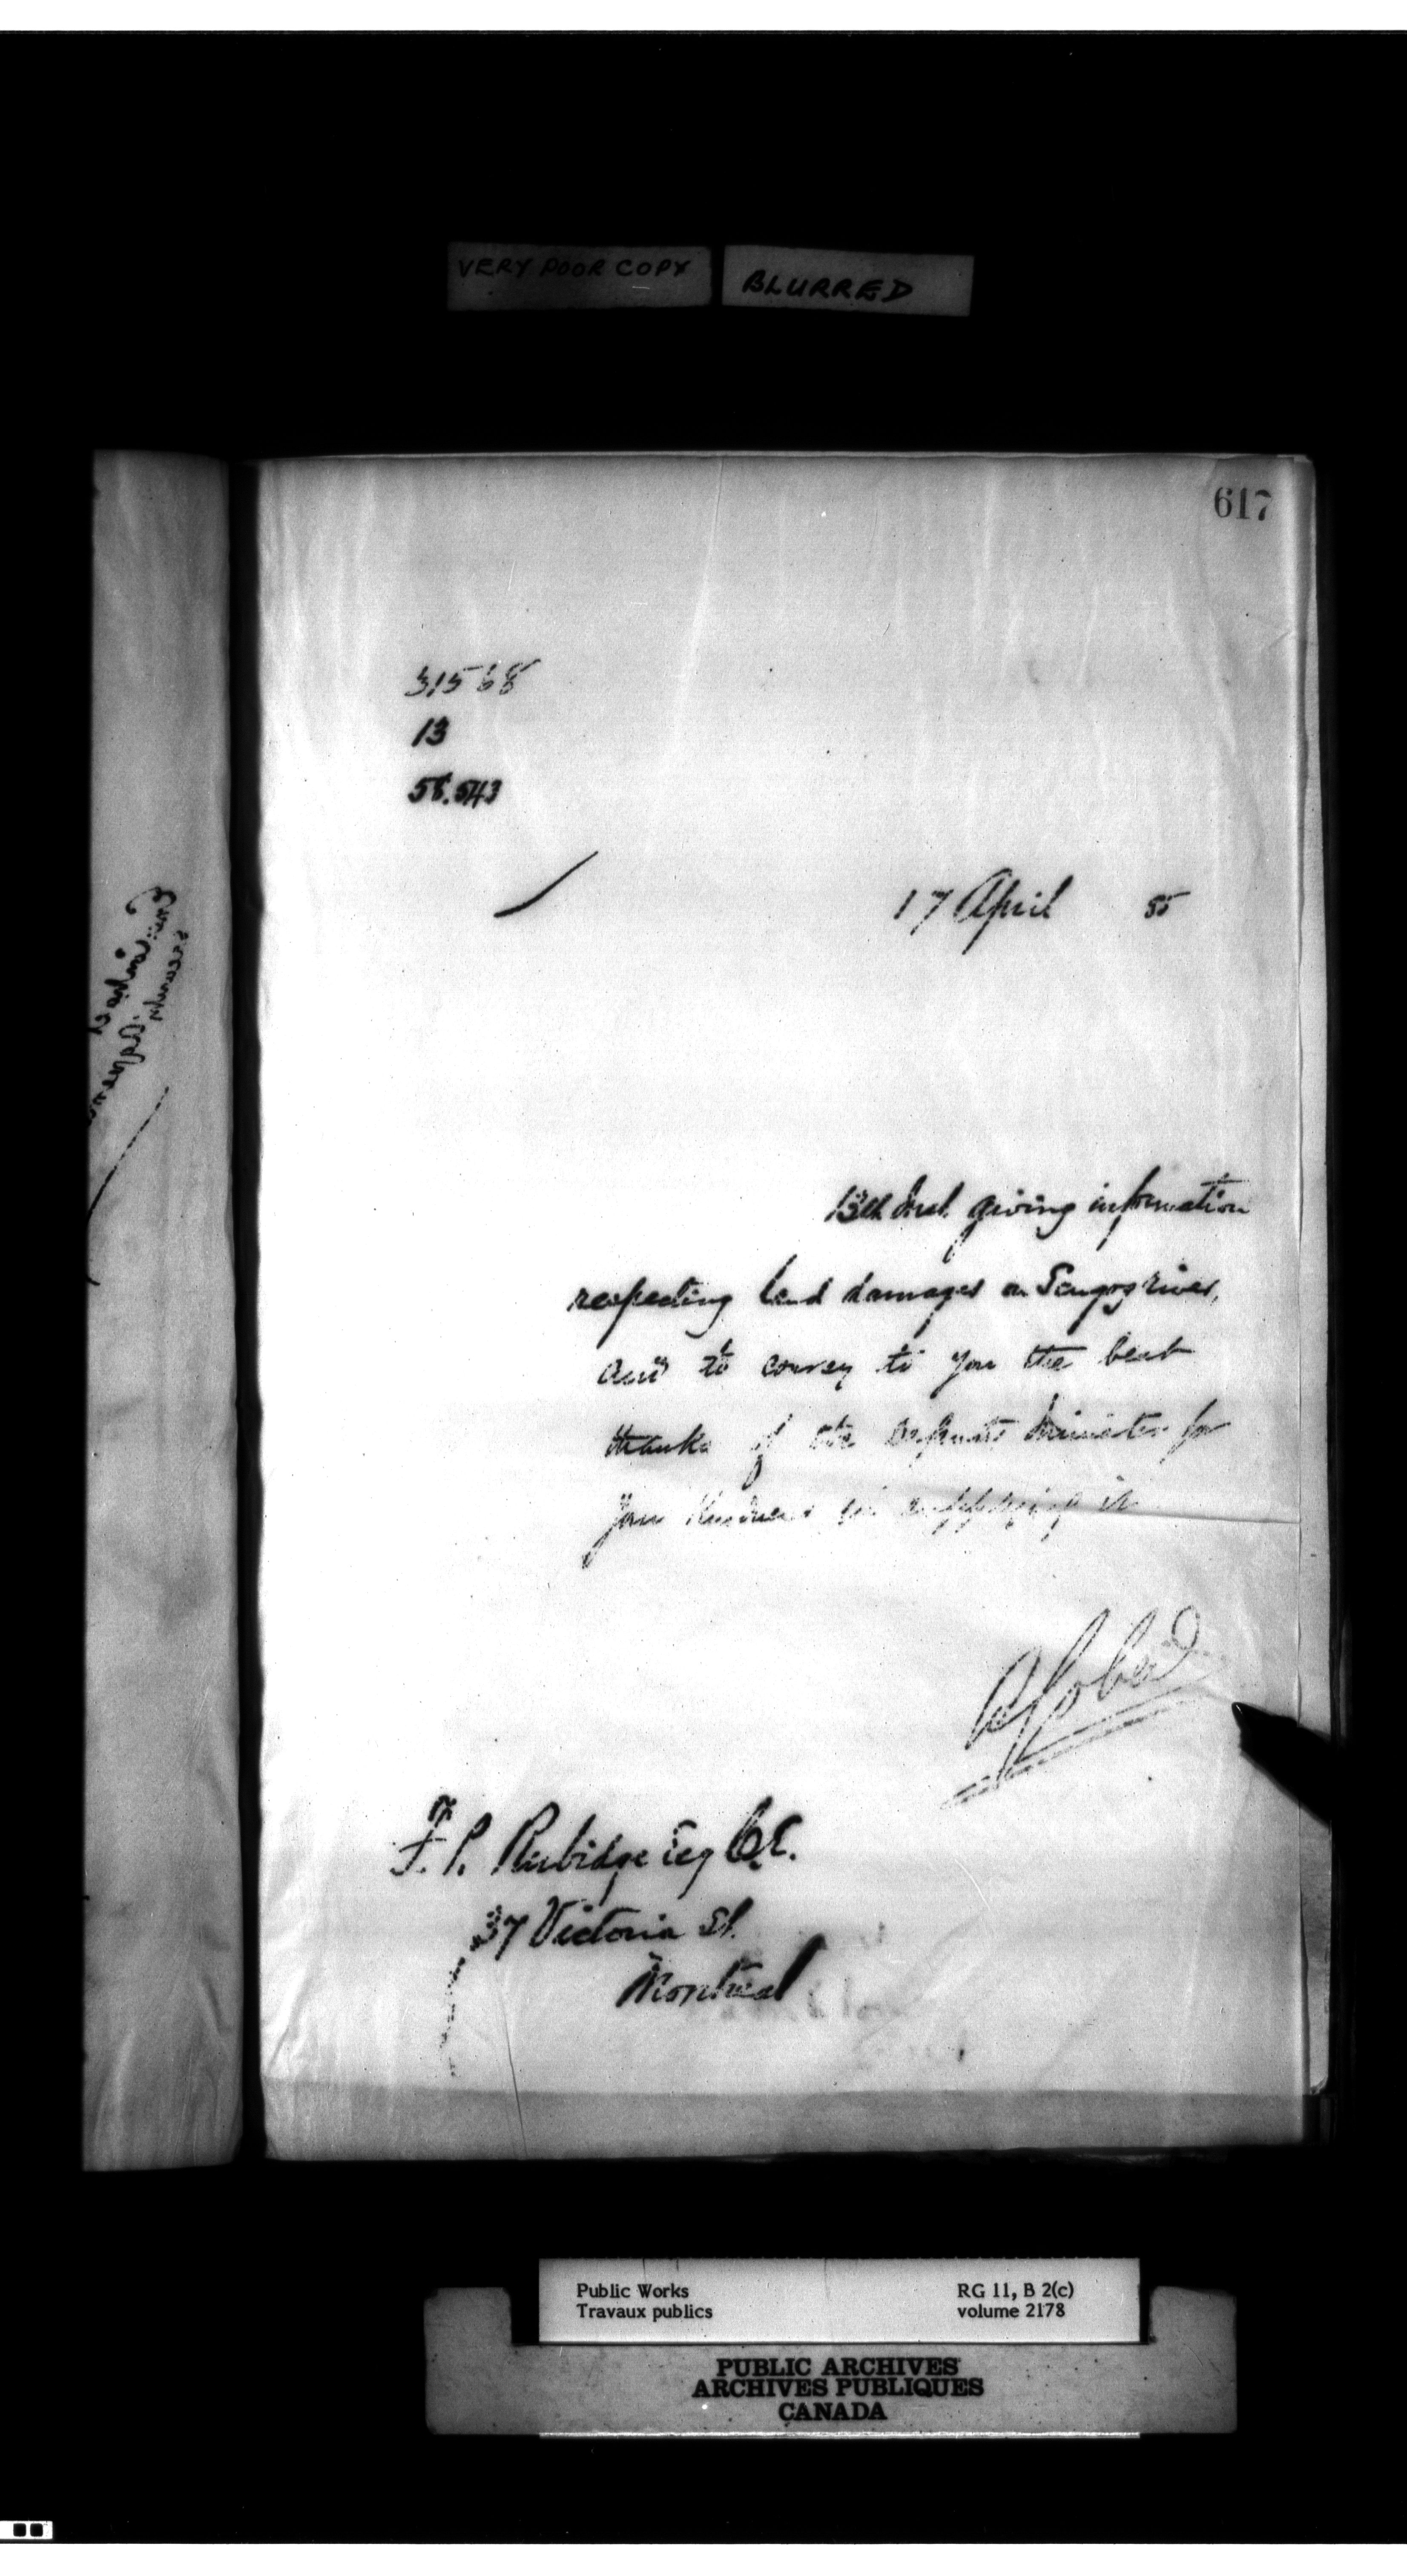 VERY POOR COPY BLURRED
617
31568
13
58.543
17 April 85
13th Inst. giving information
respecting land damages on Scugog river,
and to convey to you the best
thanks of the Deputy Minister for
your kindness in supplying it
F. P. Rubidge Esq C.E.
37 Victoria St.
Montreal
Public Works RG 11, B 2(c)
Travaux publics volume 2178
PUBLIC ARCHIVES
ARCHIVES PUBLIQUES
CANADA